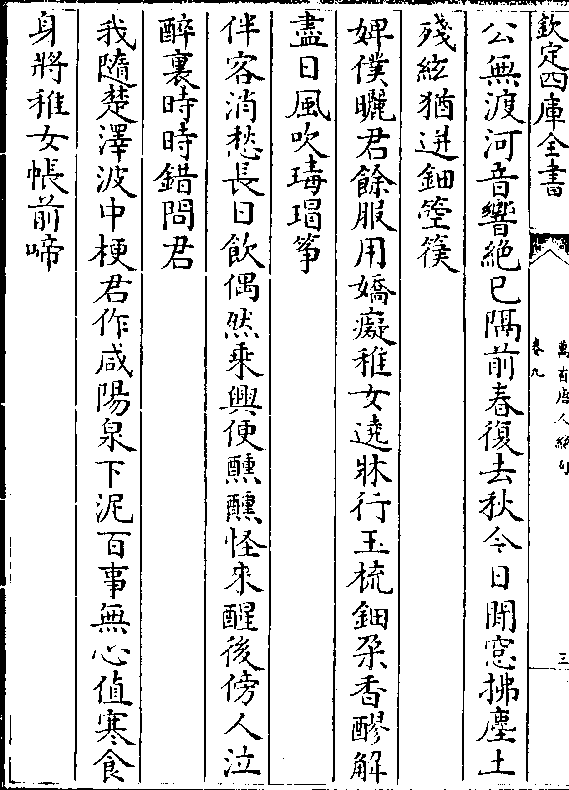 欽定四庫全書
萬首唐人絶句
卷九
三
公無渡河音響絶已隔前春復去秋今日閒窓拂塵土
殘絃猶迸鈿箜篌
婢僕曬君餘服用嬌癡稚女遶牀行玉梳鈿朶香膠解
盡日風吹瑇瑁筝
伴客消愁長日飲偶然乘興便醺醺怪來醒後傍人泣
醉裏時時錯問君
我隨楚澤波中梗君作咸陽泉下泥百事無心值寒食
身將稚女帳前啼